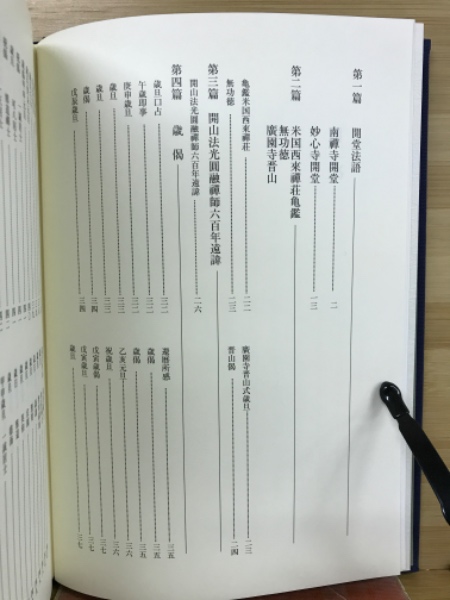 第一篇 開堂法語
南禪寺開堂 二
妙心寺開堂 一二
第二篇 米国西來禪荘亀鑑
無功德
廣園寺晋山
亀鑑米国西來禪荘 二二
廣園寺晋山式歳旦 二三
無功德 二三
晋山偈 二四
第三篇 開山法光圓融禪師六百年遠諱
開山法光圓融禪師六百年遠諱 二六
第四篇 歳偈
歳旦口占 三二
還暦所感 三五
午歳即事 三二
歳偈 三五
庚申歳旦 三三
歳偈 三五
歳旦 三三
乙亥元旦 三六
歳旦 三四
祝歳旦 三六
歳偈 三四
戊寅歳偈 三七
戊辰歳旦 三四
戊寅歳旦 三七
歳旦 三七